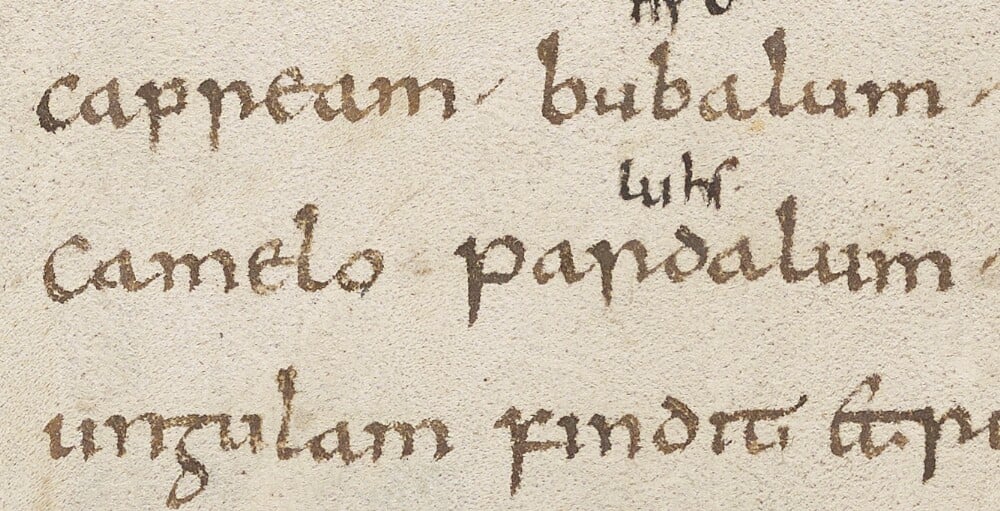 capream bubalum
luhs
camelo pardalum
ungulam findit